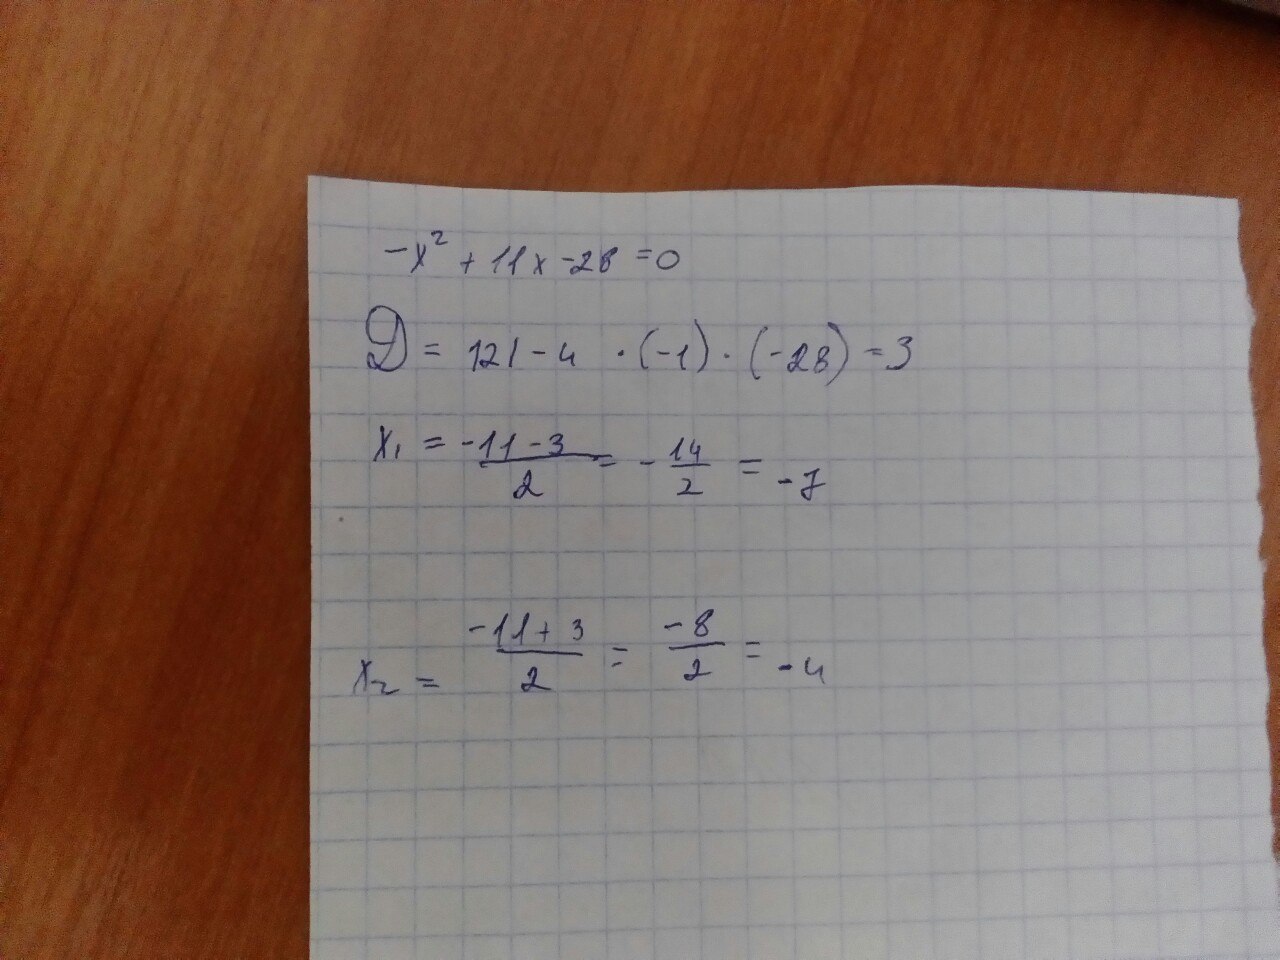 -x² + 11x - 28 = 0
D = 121 - 4 · (-1) · (-28) = 3
x₁ = (-11 - 3)/2 = - 14/2 = -7
x₂ = (-11 + 3)/2 = -8/2 = -4